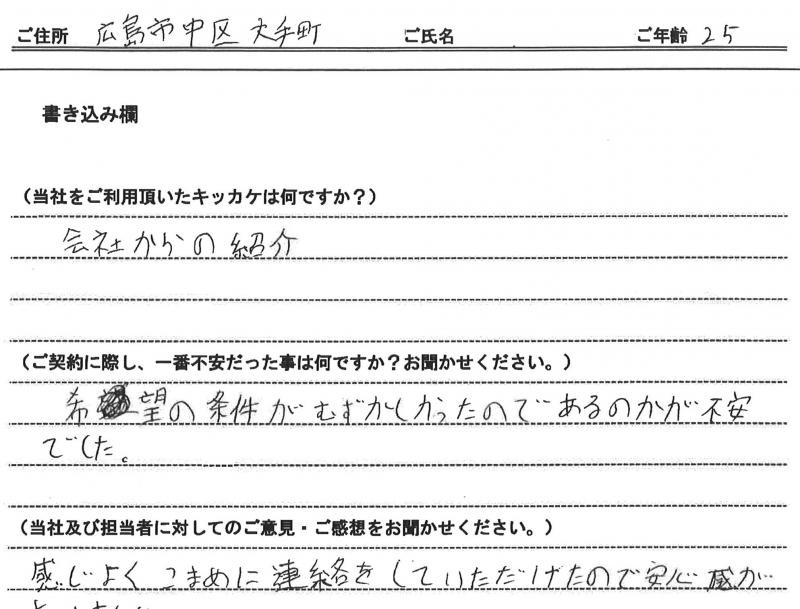 ご住所 広島市中区大手町 ご氏名 ご年齢 25
書き込み欄
（当社をご利用頂いたキッカケは何ですか？）
会社からの紹介
（ご契約に際し、一番不安だった事は何ですか？お聞かせください。）
希望の条件がむずかしかったのであるのかが不安
でした。
（当社及び担当者に対してのご意見・ご感想をお聞かせください。）
感じよくこまめに連絡をしていただけたので安心感が